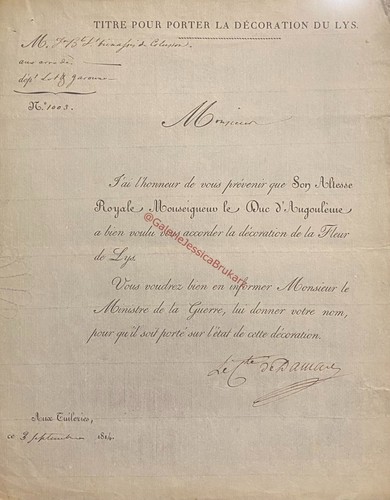 TITRE POUR PORTER LA DÉCORATION DU LYS.
M. Jn Bte
dépt Lot & Garonne
N.° 1003.
Monsieur
J'ai l'honneur de vous prévenir que Son Altesse
Royale Monseigneur le Duc d'Angoulême
a bien voulu vous accorder la décoration de la Fleur
de Lys.
@GalerieJessicaBrukarz
Vous voudrez bien en informer Monsieur le
Ministre de la Guerre, lui donner votre nom,
pour qu'il soit porté sur l'état de cette décoration.
Le Cte de Damas
Aux Tuileries,
ce 3 septembre 1814